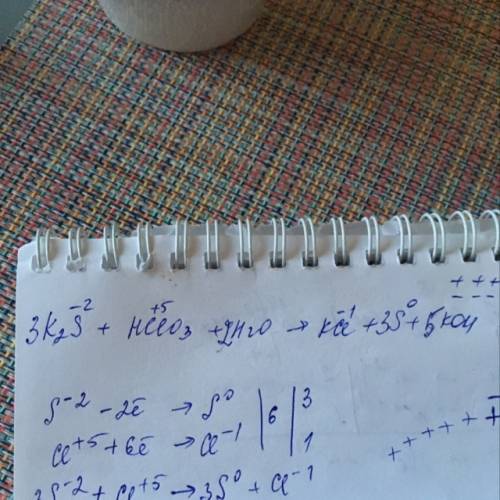 + + +
− − −
3K₂S⁻² + HCl⁺⁵O₃ + 2H₂O → KCl⁻¹ + 3S⁰ + 5KOH
S⁻² − 2ē → S⁰ | 6 | 3
Cl⁺⁵ + 6ē → Cl⁻¹ | | 1
+ + + + + +
3S⁻² + Cl⁺⁵ → 3S⁰ + Cl⁻¹